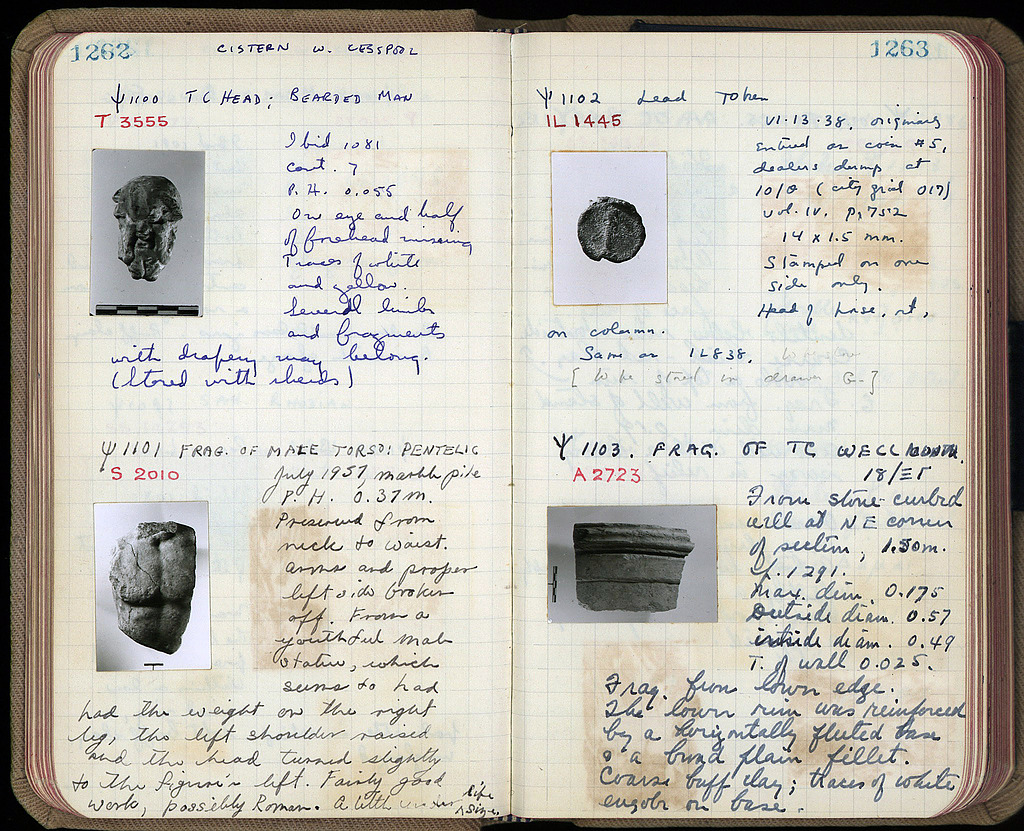 1262
CISTERN W. CESSPOOL
Ψ1100 TC HEAD; BEARDED MAN
T 3555
Ibid 1081
cont. 7
P.H. 0.055
One eye and half
of forehead missing
Traces of white
and yellow.
Several limbs
and fragments
with drapery may belong.
(Stored with sherds)
Ψ1101 FRAG. OF MALE TORSO: PENTELIC
S 2010
July 1957, marble pile
P. H. 0.37 m.
Preserved from
neck to waist.
arms and proper
left side broken
off. From a
youthful male
statue, which
seems to had
had the weight on the right
leg, the left shoulder raised
and the head turned slightly
to the figure's left. Fairly good
work, possibly Roman. A little under life
size.
1263
Ψ1102 Lead Token
IL 1445
VI.13.38. originally
entered as coin #5,
dealers dump at
10/Θ (city grid 017)
vol. IV. p. 752
14 x 1.5 mm.
Stamped on one
side only.
Head of horse, rt,
on column.
Same as IL838.
[to be stored in drawer G-]
Ψ 1103. FRAG. OF TC WELL MOUTH.
A 2723
18/ΞΓ
From stone-curbed
well at NE corner
of section, 1.30m.
cf. 1291.
Max. dim. 0.175
Outside diam. 0.57
inside diam. 0.49
T. of wall 0.025.
Frag. from lower edge.
The lower rim was reinforced
by a horizontally fluted base
& a broad plain fillet.
Coarse buff clay; traces of white
engobe on base.